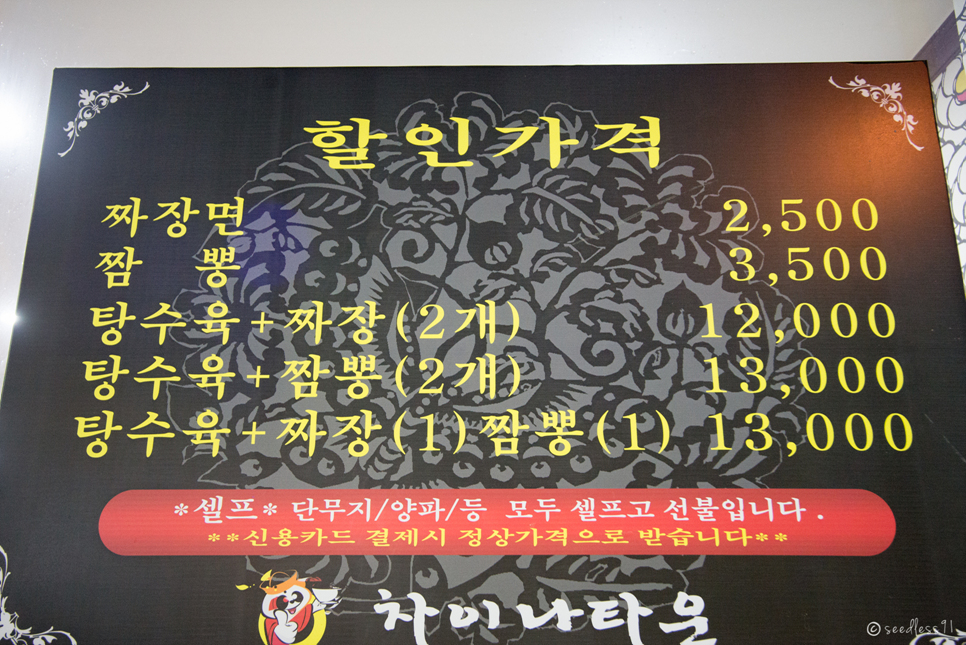 할인가격
짜장면 2,500
짬 뽕 3,500
탕수육+짜장(2개) 12,000
탕수육+짬뽕(2개) 13,000
탕수육+짜장(1)짬뽕(1) 13,000
*셀프* 단무지/양파/등 모두 셀프고 선불입니다.
**신용카드 결제시 정상가격으로 받습니다**
차이나타운
© seedless91